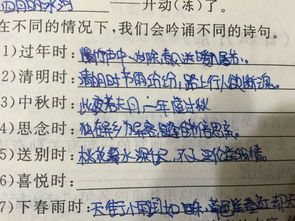 开动(冻)了。
在不同的情况下,我们会吟诵不同的诗句。
(1)过年时:爆竹声中一岁除,春风送暖入屠苏。
(2)清明时:清明时节雨纷纷,路上行人欲断魂。
(3)中秋时:
4)思念时:独在异乡为异客,每逢佳节倍思亲。
5)送别时:桃花潭水深千尺,不及汪伦送我情。
6)喜悦时:
7)下春雨时:天街小雨润如酥,草色遥看近却无